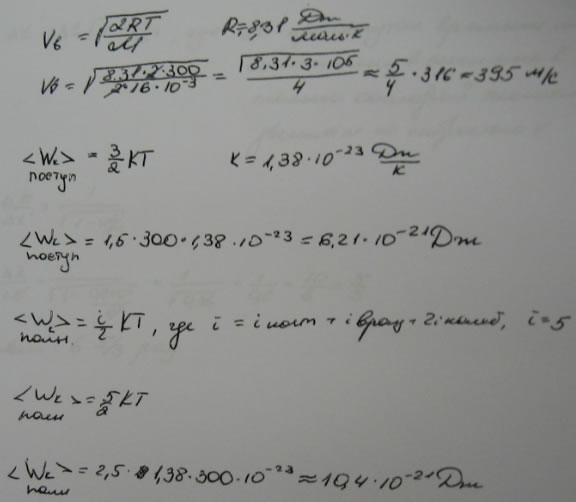 Vв = √(2RT/M) R = 8,31 Дж/моль·К
Vв = √(8,31·2·300/2·16·10⁻³) = √(8,31·3·10⁵)/4 ≈ 5/4 · 316 = 395 м/с
<Wк> поступ = 3/2 КТ К = 1,38·10⁻²³ Дж/К
<Wк> поступ = 1,5·300·1,38·10⁻²³ = 6,21·10⁻²¹ Дж
<Wк> полн. = i/2 КТ, где i = i пост + i вращ + 2i колеб, i = 5
<Wк> полн = 5/2 КТ
<Wк> полн = 2,5·1,38·300·10⁻²³ ≈ 10,4·10⁻²¹ Дж